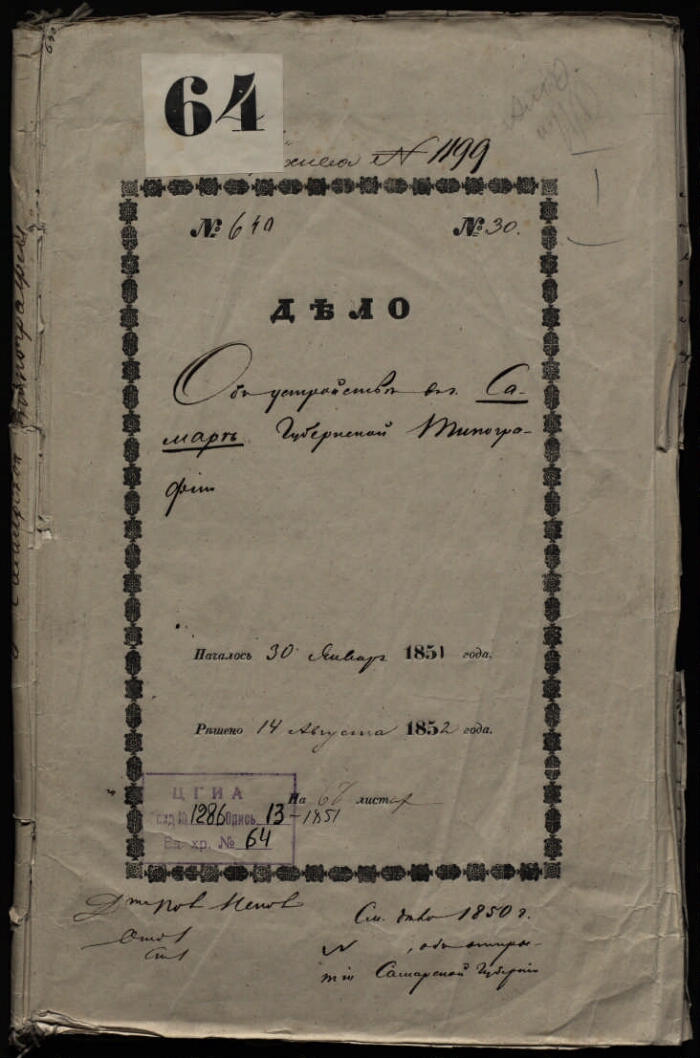 64
№ 1199
№ 640 № 30.
ДѢЛО
Объ устройствѣ въ г. Са-
марѣ Губернской Типогра-
фіи
Началось 30 Январ 1851 года.
Рѣшено 14 Августа 1852 года.
На 67 листах
ЦГИА
фонд № 1286 Опись 13 - 1851
Ед. хр. № 64
См. дѣло 1850 г.
№ , объ откры-
тіи Самарской Губерніи